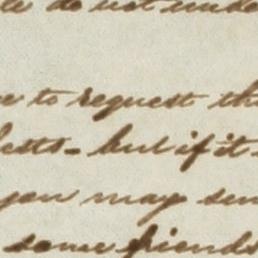 do not unde
to request th
- but if it
you may sen
some friends